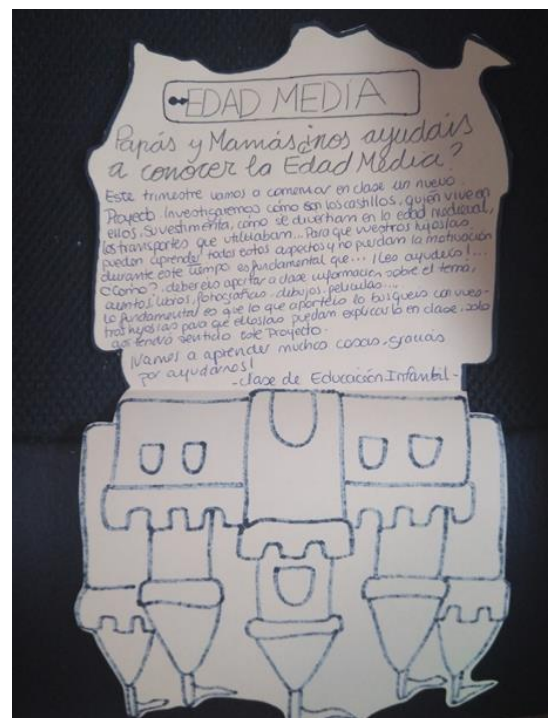 EDAD MEDIA
Papás y Mamás ¿nos ayudáis
a conocer la Edad Media?
Este trimestre vamos a comenzar en clase un nuevo
Proyecto. Investigaremos cómo son los castillos, quién vive en
ellos, su vestimenta, cómo se divertían en la edad medieval,
los transportes que utilizaban... Para que vuestros hijos/as
puedan aprender todos estos aspectos y no pierdan la motivación
durante este tiempo es fundamental que... ¡Les ayudéis!...
¿Cómo?, debereis aportar a clase información sobre el tema,
cuentos, libros, fotografías, dibujos, películas...
Lo fundamental es que lo que aporteis lo busqueis con vues-
tros hijos/as para que ellos/as puedan explicarlo en clase, solo
así tendrá sentido este Proyecto.
¡Vamos a aprender muchas cosas, gracias
por ayudarnos!
-Clase de Educación Infantil-